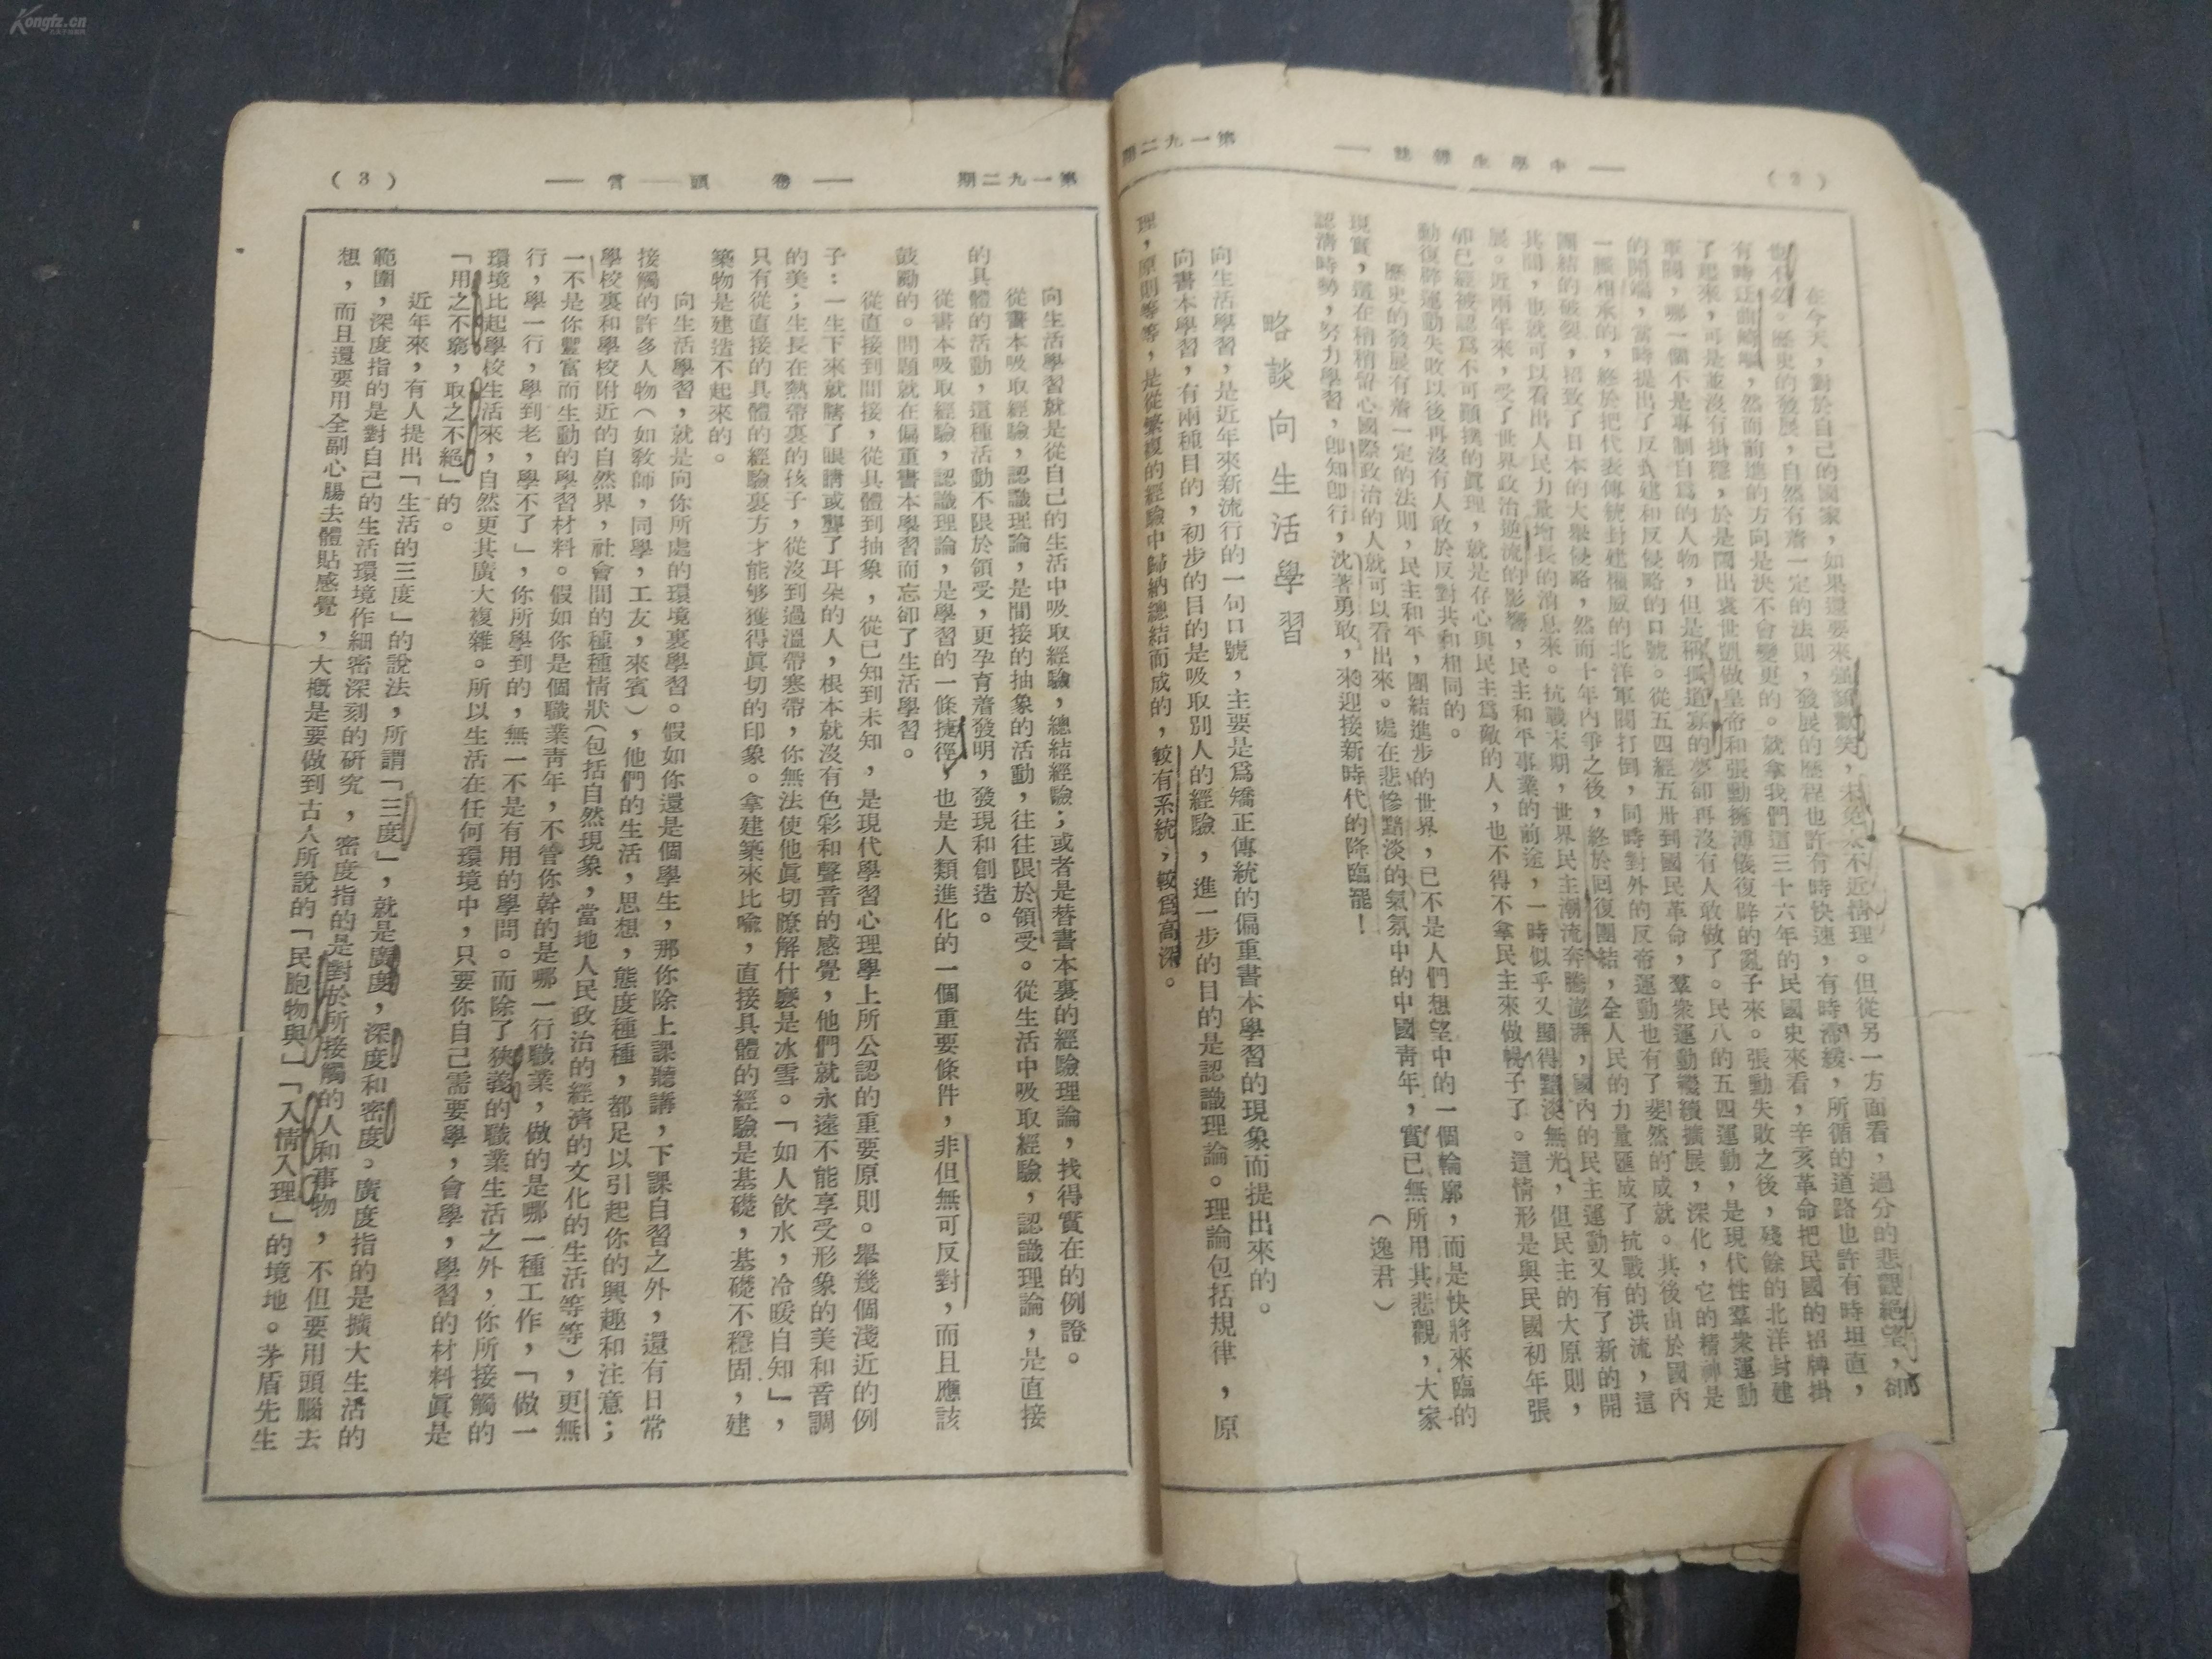 Kongfz.cn
(2)
中學生雜誌
第一九二期
在今天,對於自己的國家,如果還要來強顏歡笑,未免太不近情理。但從另一方面看,過分的悲觀絕望,卻
也不必。歷史的發展,自然有着一定的法則,發展的歷程也許有時快速,有時滯緩,所循的道路也許有時坦直,
有時迂曲崎嶇,然而前進的方向是決不會變更的。就拿我們這三十六年的民國史來看,辛亥革命把民國的招牌掛
了起來,可是並沒有掛穩,於是鬧出袁世凱做皇帝和張勳擁溥儀復辟的亂子來。張勳失敗之後,殘餘的北洋封建
軍閥,哪一個不是專制自爲的人物,但是稱孤道寡的夢卻再沒有人敢做了。民八的五四運動,是現代性羣衆運動
的開端,當時提出了反封建和反侵略的口號。從五四經五卅到國民革命,羣衆運動繼續擴展,深化,它的精神是
一脈相承的,終於把代表傳統封建權威的北洋軍閥打倒,同時對外的反帝運動也有了斐然的成就。其後由於國內
團結的破裂,招致了日本的大舉侵略,然而十年內爭之後,終於回復團結,全人民的力量匯成了抗戰的洪流,這
其間,也就可以看出人民力量增長的消息來。抗戰末期,世界民主潮流奔騰澎湃,國內的民主運動又有了新的開
展。近兩年來,受了世界政治逆流的影響,民主和平事業的前途,一時似乎又顯得黯淡無光,但民主的大原則,
卻已經被認爲不可顚撲的眞理,就是存心與民主爲敵的人,也不得不拿民主來做幌子了。這情形是與民國初年張
勳復辟運動失敗以後再沒有人敢於反對共和相同的。
歷史的發展有着一定的法則,民主和平,團結進步的世界,已不是人們想望中的一個輪廓,而是快將來臨的
現實,還在稍稍留心國際政治的人就可以看出來。處在悲慘黯淡的氣氛中的中國青年,實已無所用其悲觀,大家
認清時勢,努力學習,卽知卽行,沈著勇敢,來迎接新時代的降臨罷!
(逸君)
略談向生活學習
向生活學習,是近年來新流行的一句口號,主要是爲矯正傳統的偏重書本學習的現象而提出來的。
向書本學習,有兩種目的,初步的目的是吸取別人的經驗,進一步的目的是認識理論。理論包括規律,原
理,原則等等,是從繁複的經驗中歸納總結而成的,較有系統,較爲高深。
第一九二期
卷頭言
(3)
向生活學習就是從自己的生活中吸取經驗,總結經驗;或者是替書本裏的經驗理論,找得實在的例證。
從書本吸取經驗,認識理論,是間接的抽象的活動,往往限於領受。從生活中吸取經驗,認識理論,是直接
的具體的活動,這種活動不限於領受,更孕育着發明,發現和創造。
從書本吸取經驗,認識理論,是學習的一條捷徑,也是人類進化的一個重要條件,非但無可反對,而且應該
鼓勵的。問題就在偏重書本學習而忘卻了生活學習。
從直接到間接,從具體到抽象,從已知到未知,是現代學習心理學上所公認的重要原則。舉幾個淺近的例
子:一生下來就瞎了眼睛或聾了耳朶的人,根本就沒有色彩和聲音的感覺,他們就永遠不能享受形象的美和音調
的美;生長在熱帶裏的孩子,從沒到過溫帶寒帶,你無法使他眞切瞭解什麼是冰雪。「如人飲水,冷暖自知」,
只有從直接的具體的經驗裏方才能够獲得眞切的印象。拿建築來比喩,直接具體的經驗是基礎,基礎不穩固,建
築物是建造不起來的。
向生活學習,就是向你所處的環境裏學習。假如你還是個學生,那你除上課聽講,下課自習之外,還有日常
接觸的許多人物(如敎師,同學,工友,來賓),他們的生活,思想,態度種種,都足以引起你的興趣和注意;
學校裏和學校附近的自然界,社會間的種種情狀(包括自然現象,當地人民政治的經濟的文化的生活等等),更無
一不是你豐富而生動的學習材料。假如你是個職業青年,不管你幹的是哪一行職業,做的是哪一種工作,「做一
行,學一行,學到老,學不了」,你所學到的,無一不是有用的學問。而除了狹義的職業生活之外,你所接觸的
環境比起學校生活來,自然更其廣大複雜。所以生活在任何環境中,只要你自己需要學,會學,學習的材料眞是
「用之不窮,取之不絕」的。
近年來,有人提出「生活的三度」的說法,所謂「三度」,就是廣度,深度和密度。廣度指的是擴大生活的
範圍,深度指的是對自己的生活環境作細密深刻的硏究,密度指的是對於所接觸的人和事物,不但要用頭腦去
想,而且還要用全副心腸去體貼感覺,大槪是要做到古人所說的「民胞物與」「入情入理」的境地。茅盾先生